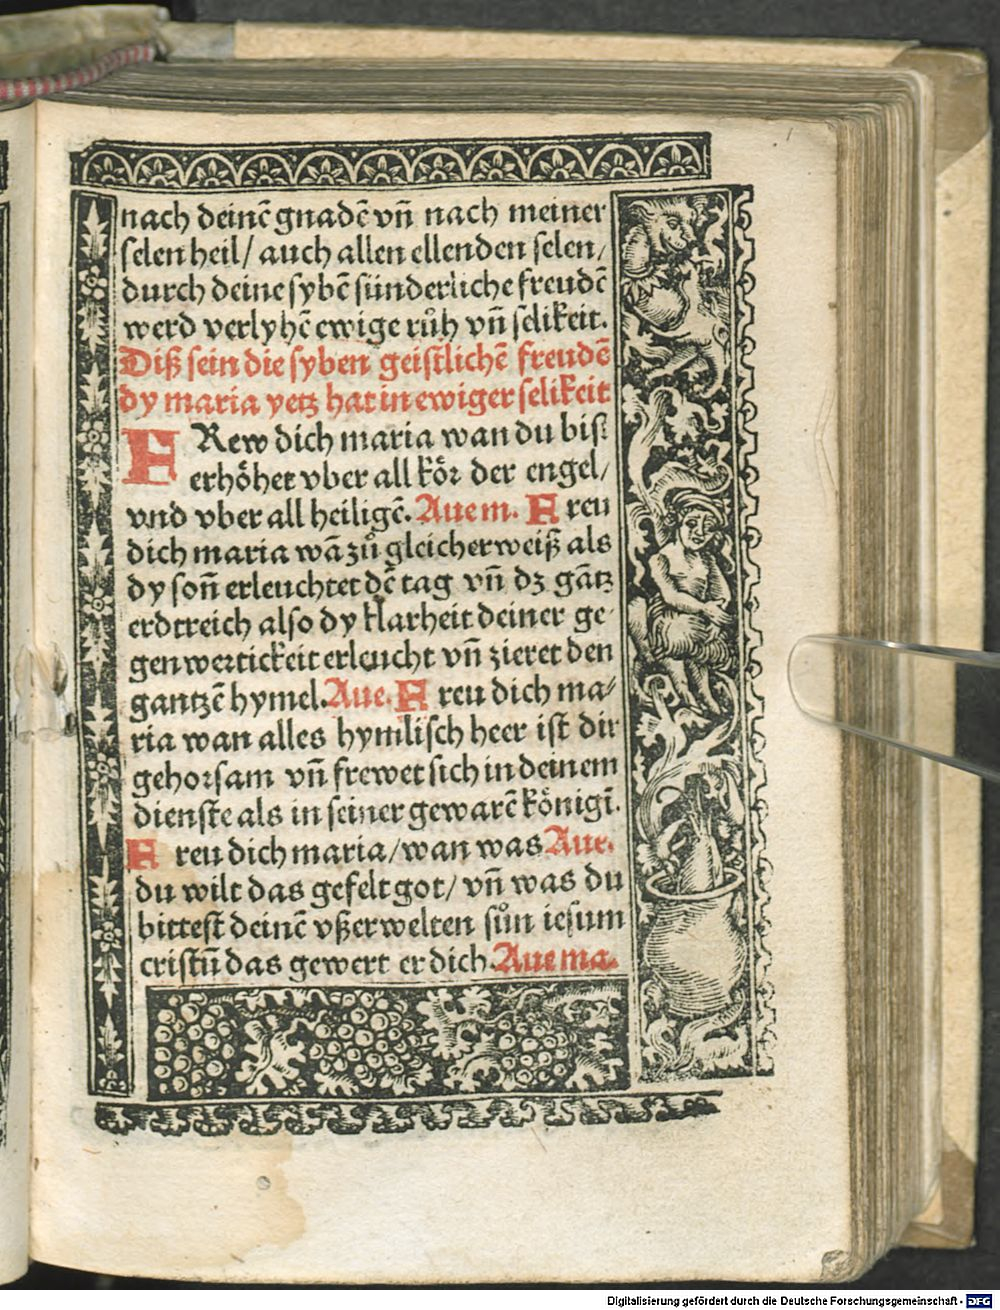 nach deinē gnadē vn̄ nach meiner
selen heil/ auch allen ellenden selen/
durch deine sybē sünderliche freudē
werd verlyhē ewige růh vn̄ selikeit.
Diß sein die syben geistlichē freudē
dy maria yetz hat in ewiger selikeit
FRew dich maria wan du bist
erhöhet vber all kör der engel/
vnd vber all heiligē. Aue m. Freu
dich maria wā zů gleicherweiß als
dy son̄ erleuchtet dē tag vn̄ dz gātz
erdtreich also dy klarheit deiner ge
genwertickeit erleucht vn̄ zieret den
gantzē hymel. Aue. Freu dich ma⸗
ria wan alles hymlisch heer ist dir
gehorsam vn̄ frewet sich in deinem
dienste als in seiner gewarē königī.
Freu dich maria/ wan was Aue.
du wilt das gefelt got/ vn̄ was du
bittest deinē vßerwelten sůn iesum
cristū das gewert er dich. Aue ma.
Digitalisierung gefördert durch die Deutsche Forschungsgemeinschaft - DFG